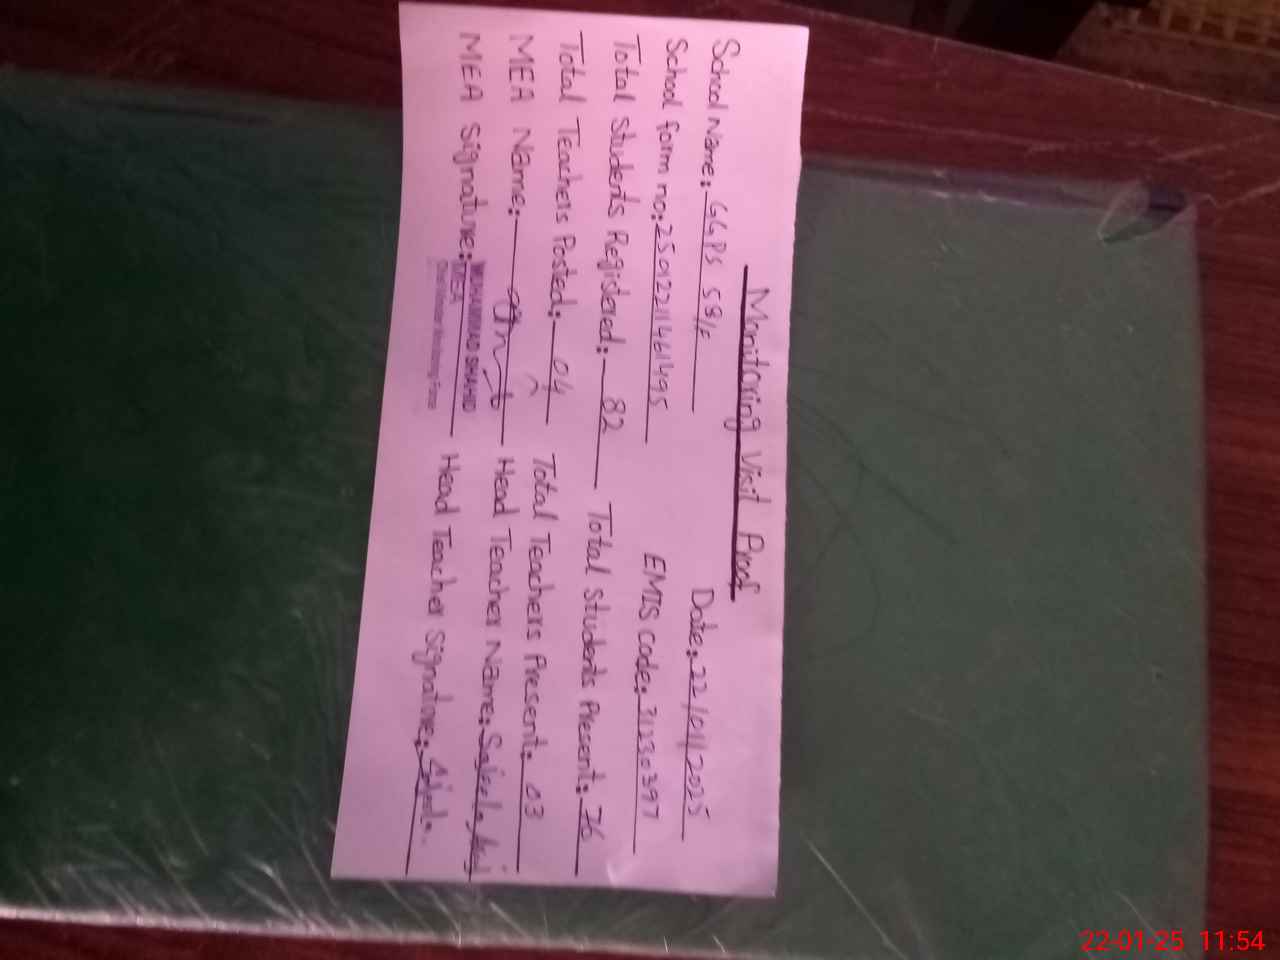 Monitoring Visit Proof
School Name: GGPS 58/F Date: 22/01/2025
School form no: 2501221461495 EMIS code: 31230397
Total Students Registered: 82 Total Students Present: 76
Total Teachers Posted: 04 Total Teachers Present: 03
MEA Name: Head Teacher Name: Sajeela
MEA Signature: MUHAMMAD SHAHID Head Teacher Signature: Sajeela
MEA
22-01-25 11:54